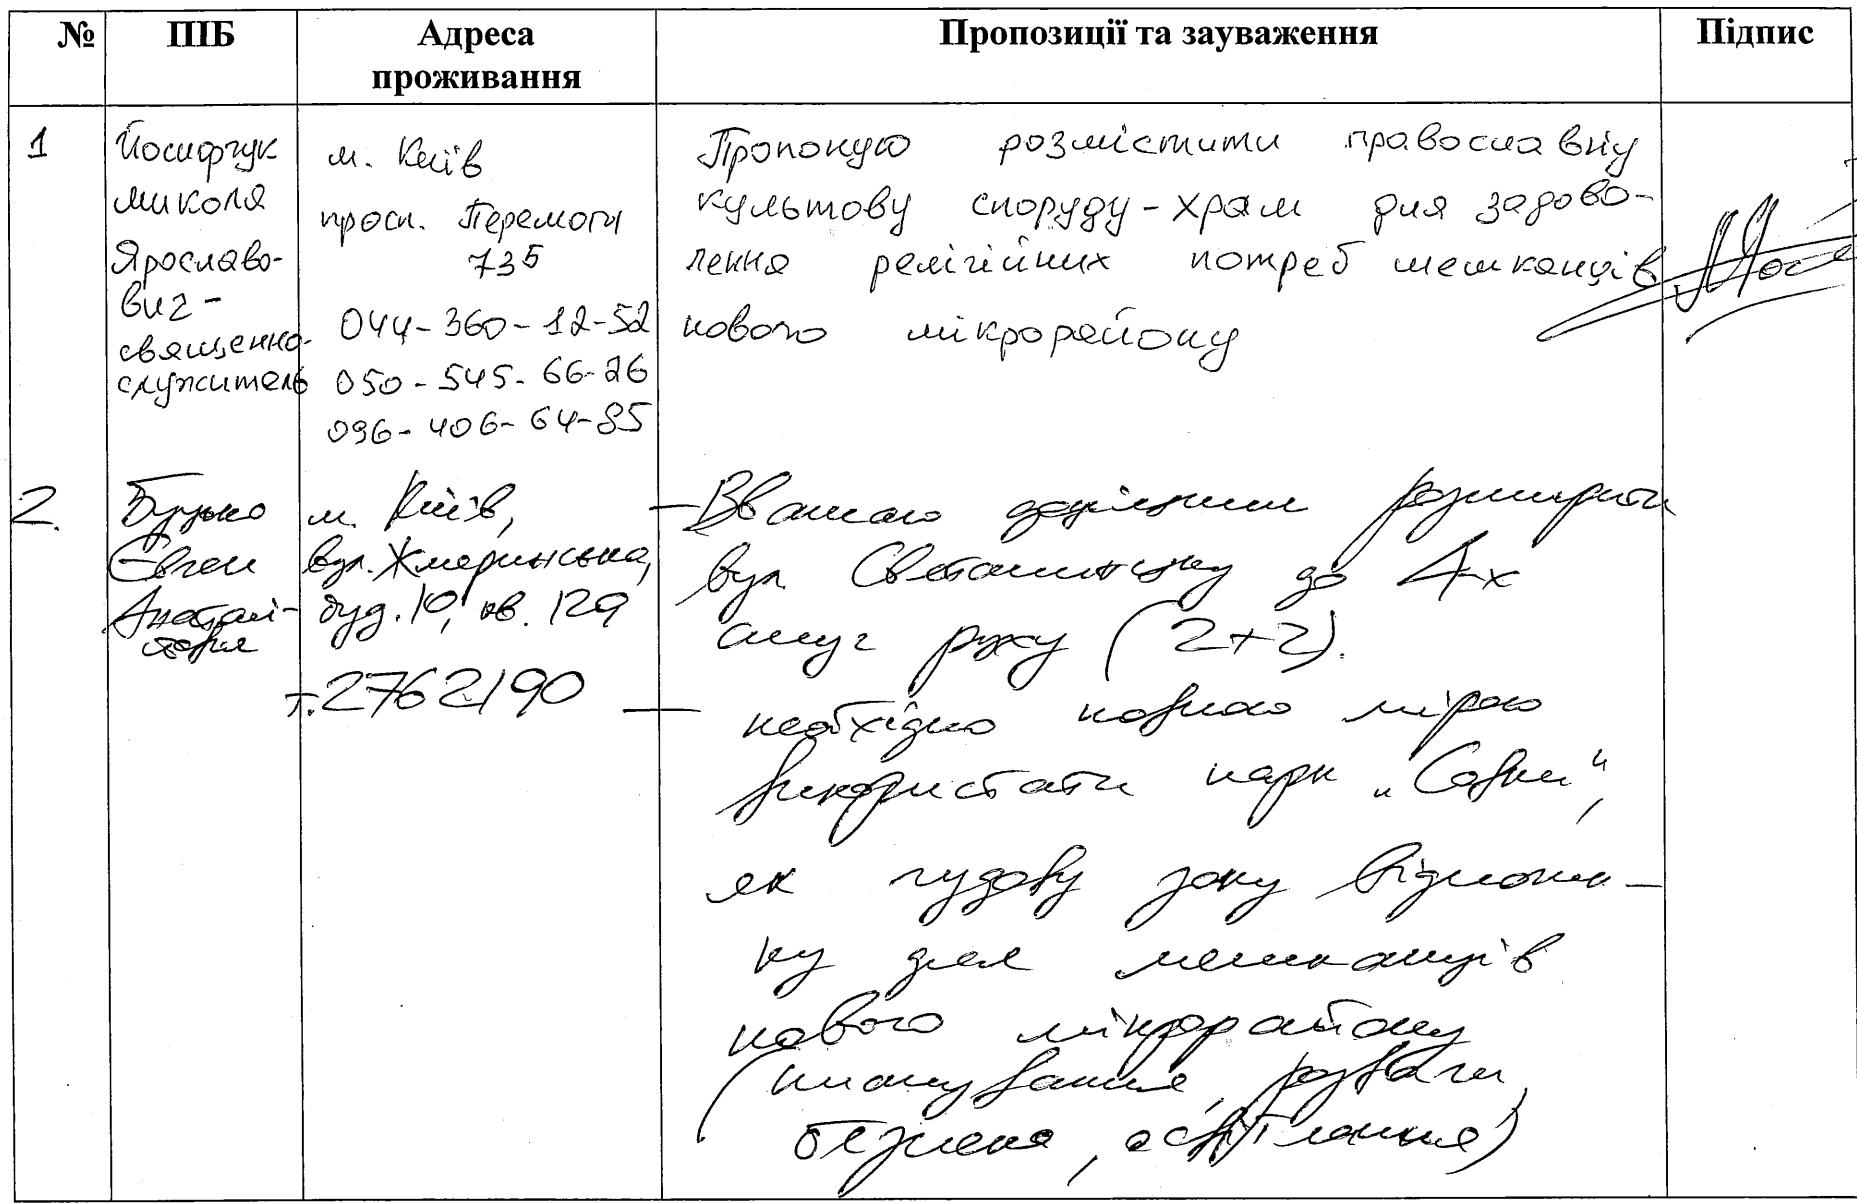 № ПІБ Адреса проживання Пропозиції та зауваження Підпис
1
Йосифчук
Микола
Ярославо-
вич -
священно-
служитель
м. Київ
просп. Перемоги
735
044-360-12-52
050-545-66-26
096-406-64-85
Пропоную розмістити православну
культову споруду-храм для задово-
лення релігійних потреб мешканців
нового мікрорайону
2.
Буцько
Євген
Анатолі-
йович
м. Київ,
вул. Жмеринська,
буд. 10, кв. 129
т. 2762190
— Вважаю доцільним розширити
вул Святошинську до 4-х
смуг руху (2+2).
— необхідно повною мірою
використати парк „Совки",
як чудову зону відпочин-
ку для мешканців
нового мікрорайону
(планування, розваги,
безпека, освітлення)